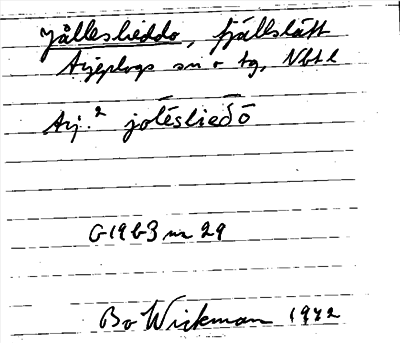 Jålleslieddo, fjällslått
Arjeplogs sn o tg, Nbt l
Arj.² jo̅lēsliedō
G1963 nr 29
Bo Wickman 1972